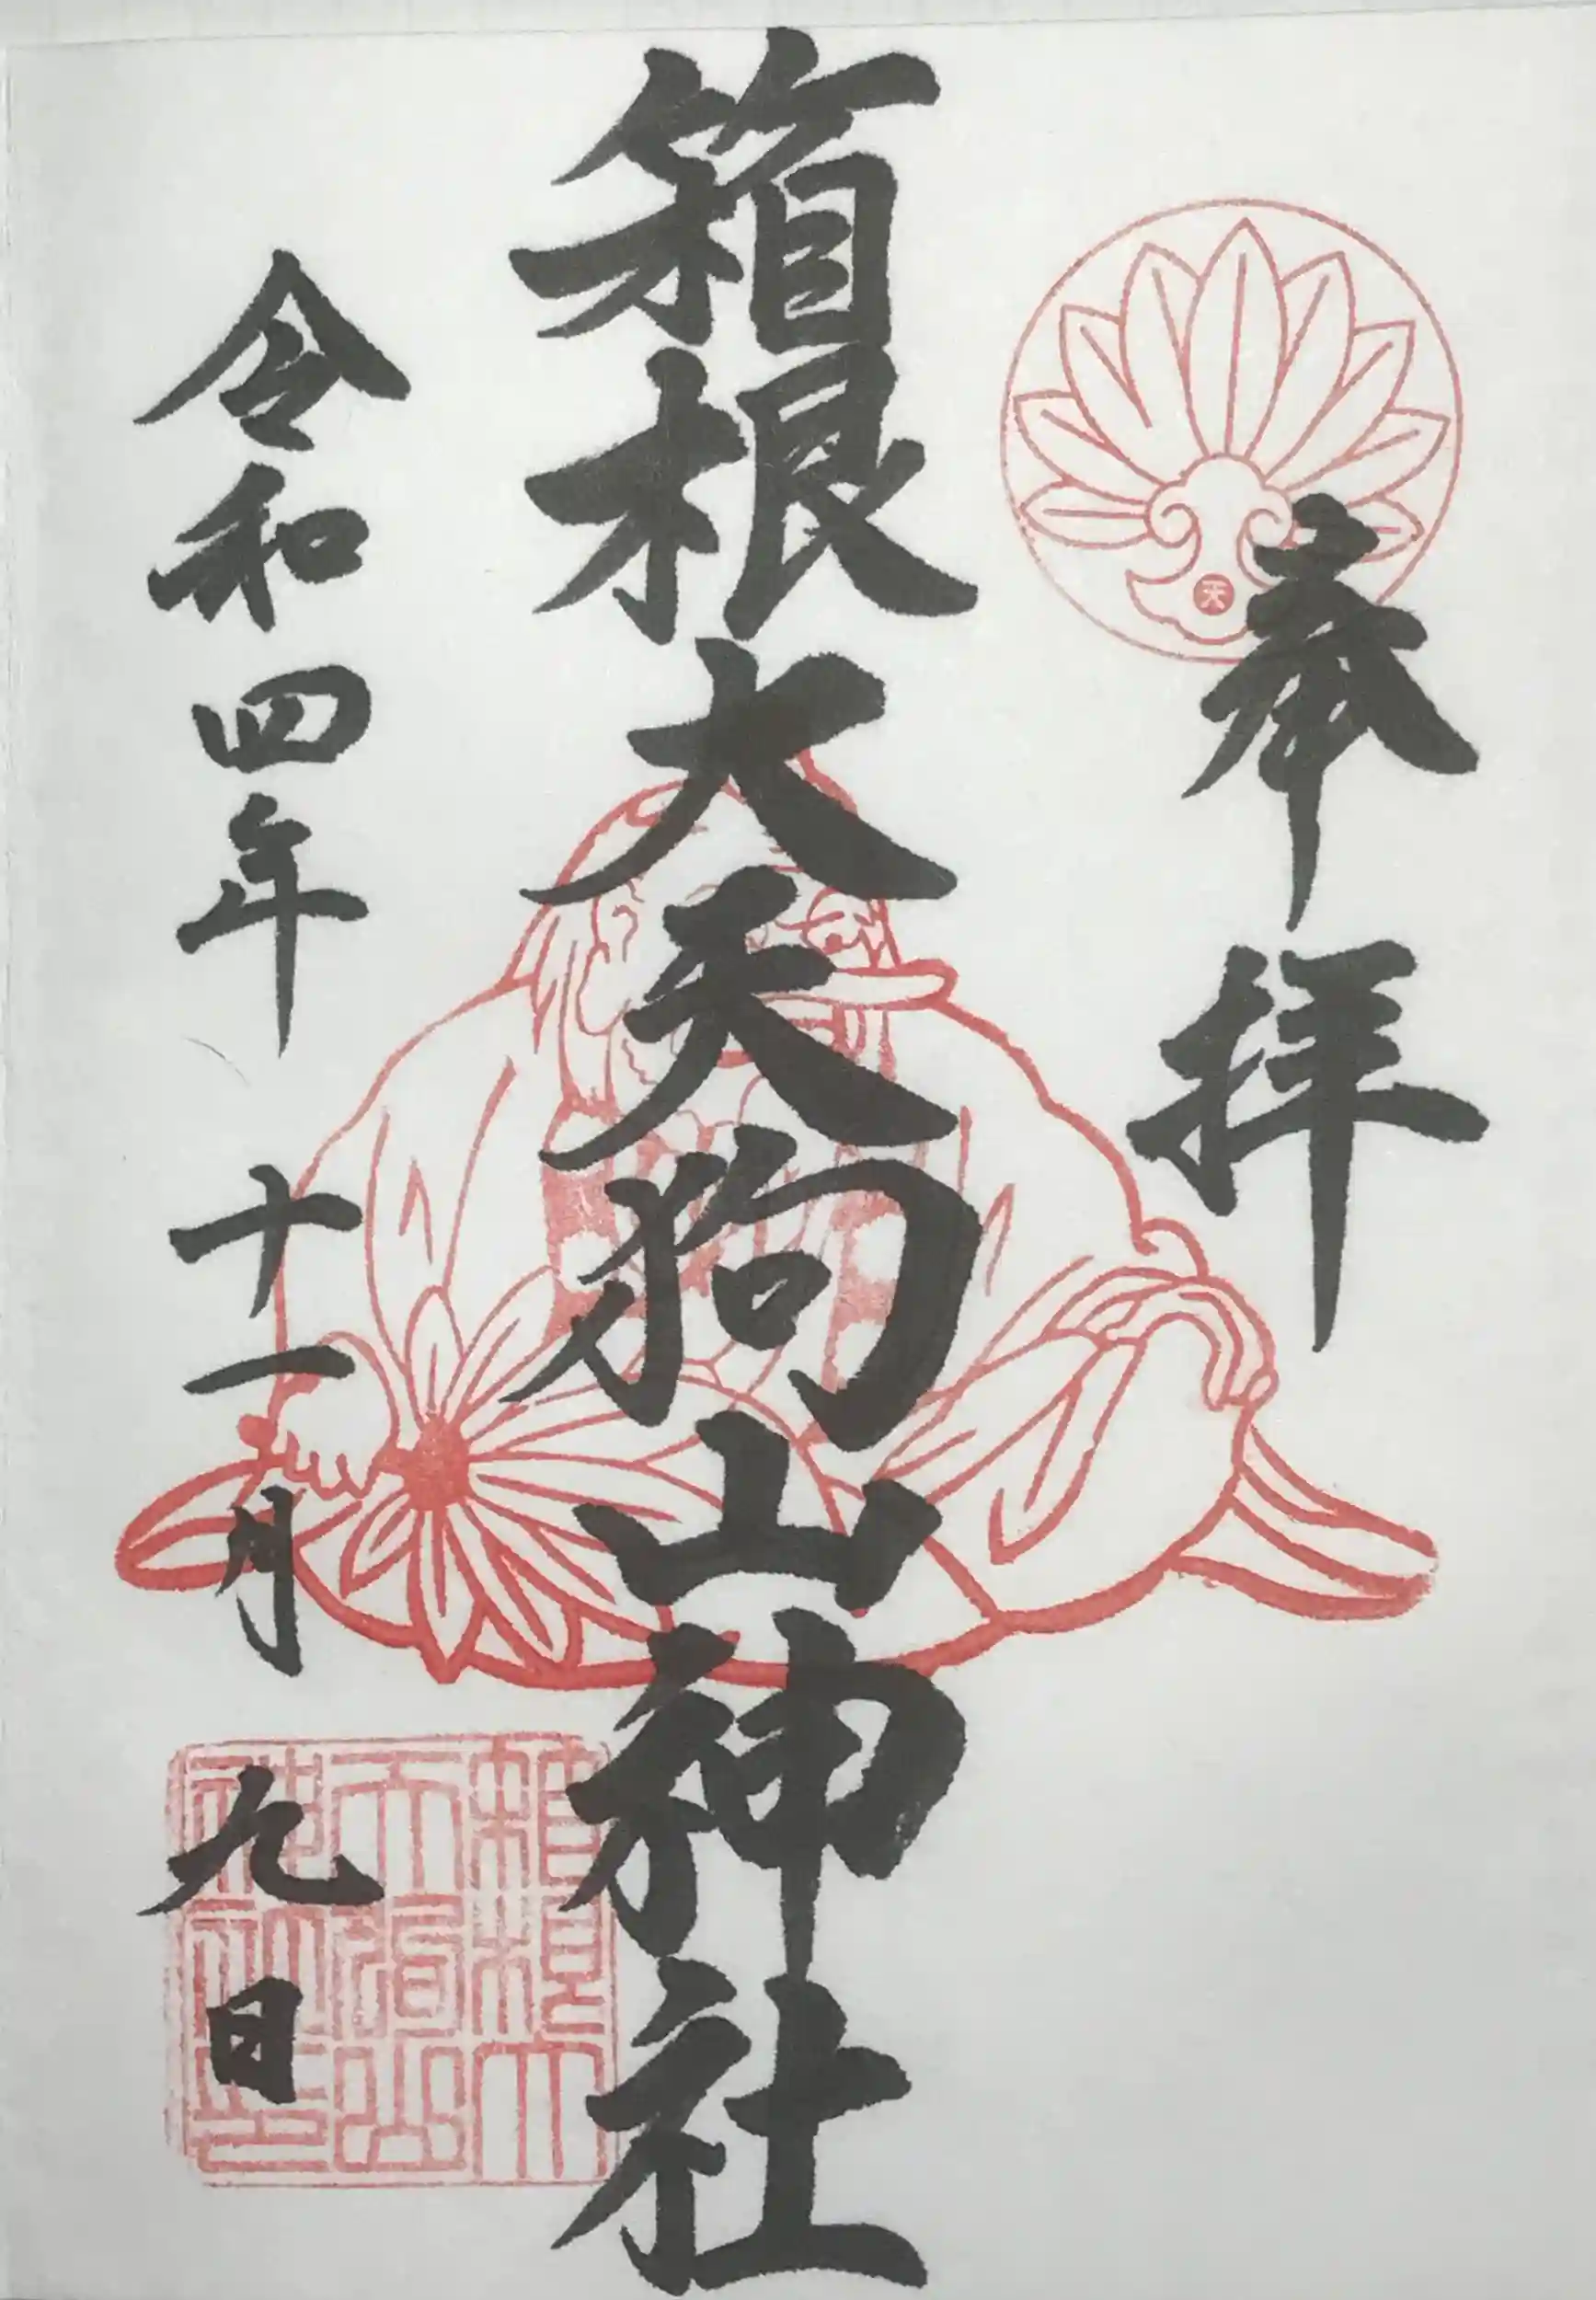 奉拝
天
箱根大天狗山神社
令和四年十一月九日
箱根大
天狗山
神社之印